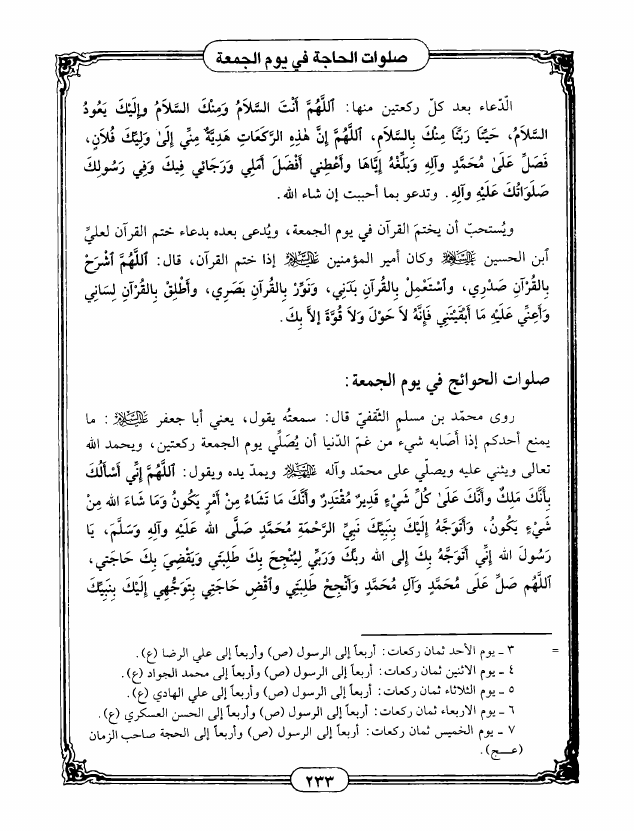 صلوات الحاجة في يوم الجمعة
الدّعاء بعد كلّ ركعتين منها: اَللَّهُمَّ أَنْتَ السَّلاَمُ وَمِنْكَ السَّلاَمُ وإِلَيْكَ يَعُودُ
السَّلاَمُ، حَيِّنَا رَبَّنَا مِنْكَ بِالسَّلاَمِ، اَللَّهُمَّ إِنَّ هٰذِهِ الرَّكَعَاتِ هَدِيَّةٌ مِنِّي إِلَىٰ وَلِيِّكَ فُلاَنٍ،
فَصَلِّ عَلَىٰ مُحَمَّدٍ وآلِهِ وَبَلِّغْهُ إِيَّاهَا وأَعْطِني أَفْضَلَ أَمَلِي وَرَجَائي فِيكَ وَفِي رَسُولِكَ
صَلَوَاتُكَ عَلَيْهِ وآلِهِ. وتدعو بما أحببت إن شاء الله.
ويُستحبّ أن يختمَ القرآن في يوم الجمعة، ويُدعى بعده بدعاء ختم القرآن لعليّ
ابن الحسين عليه السلام وكان أمير المؤمنين عليه السلام إذا ختم القرآن، قال: اَللَّهُمَّ اَشْرَحْ
بِالقُرْآنِ صَدْرِي، واَسْتَعْمِلْ بِالقُرْآنِ بَدَني، وَنَوِّرْ بِالقُرْآنِ بَصَرِي، وأَطْلِقْ بِالقُرْآنِ لِسَاني
وَأَعِنِّي عَلَيْهِ مَا أَبْقَيْتَنِي فَإِنَّهُ لاَ حَوْلَ وَلاَ قُوَّةَ إلاَّ بِكَ.
صلوات الحوائج في يوم الجمعة:
روى محمّد بن مسلم الثّقفيّ قال: سمعتُه يقول، يعني أبا جعفر عليه السلام: ما
يمنع أحدكم إذا أصَابه شيء من غمّ الدّنيا أن يُصَلِّي يوم الجمعة ركعتين، ويحمد الله
تعالى ويثني عليه ويصلّي على محمّد وآله ويمدّ يده ويقول: اَللَّهُمَّ إِنِّي أَسْأَلُكَ
بِأَنَّكَ مَلِكٌ وأَنَّكَ عَلَىٰ كُلِّ شَيْءٍ قَدِيرٌ مُقْتَدِرٌ وأَنَّكَ مَا تَشَاءُ مِنْ أَمْرٍ يَكُونُ وَمَا شَاءَ الله مِنْ
شَيْءٍ يَكُونُ، وَأَتَوَجَّهُ إِلَيْكَ بِنَبِيِّكَ نَبِيِّ الرَّحْمَةِ مُحَمَّدٍ صَلَّى الله عَلَيْهِ وآلِهِ وَسَلَّمَ، يَا
رَسُولَ الله إِنِّي أَتَوَجَّهُ بِكَ إلى الله رَبِّكَ وَرَبِّي لِيُنْجِحَ بِكَ طَلِبَتي وَيَقْضِيَ بِكَ حَاجَتي،
اَللَّهُم صَلِّ عَلَى مُحَمَّدٍ وَآلِ مُحَمَّدٍ وَأَنْجِحْ طَلِبَتِي واَقْضِ حَاجَتِي بِتَوَجُّهِي إِلَيْكَ بِنَبِيِّكَ
= ٣ ـ يوم الأحد ثمان ركعات: أربعاً إلى الرسول (ص) وأربعاً إلى علي الرضا (ع).
٤ ـ يوم الاثنين ثمان ركعات: أربعاً إلى الرسول (ص) وأربعاً إلى محمد الجواد (ع).
٥ ـ يوم الثلاثاء ثمان ركعات: أربعاً إلى الرسول (ص) وأربعاً إلى علي الهادي (ع).
٦ ـ يوم الاربعاء ثمان ركعات: أربعاً إلى الرسول (ص) وأربعاً إلى الحسن العسكري (ع).
٧ ـ يوم الخميس ثمان ركعات: أربعاً إلى الرسول (ص) وأربعاً إلى الحجة صاحب الزمان
(عـج).
٢٣٣